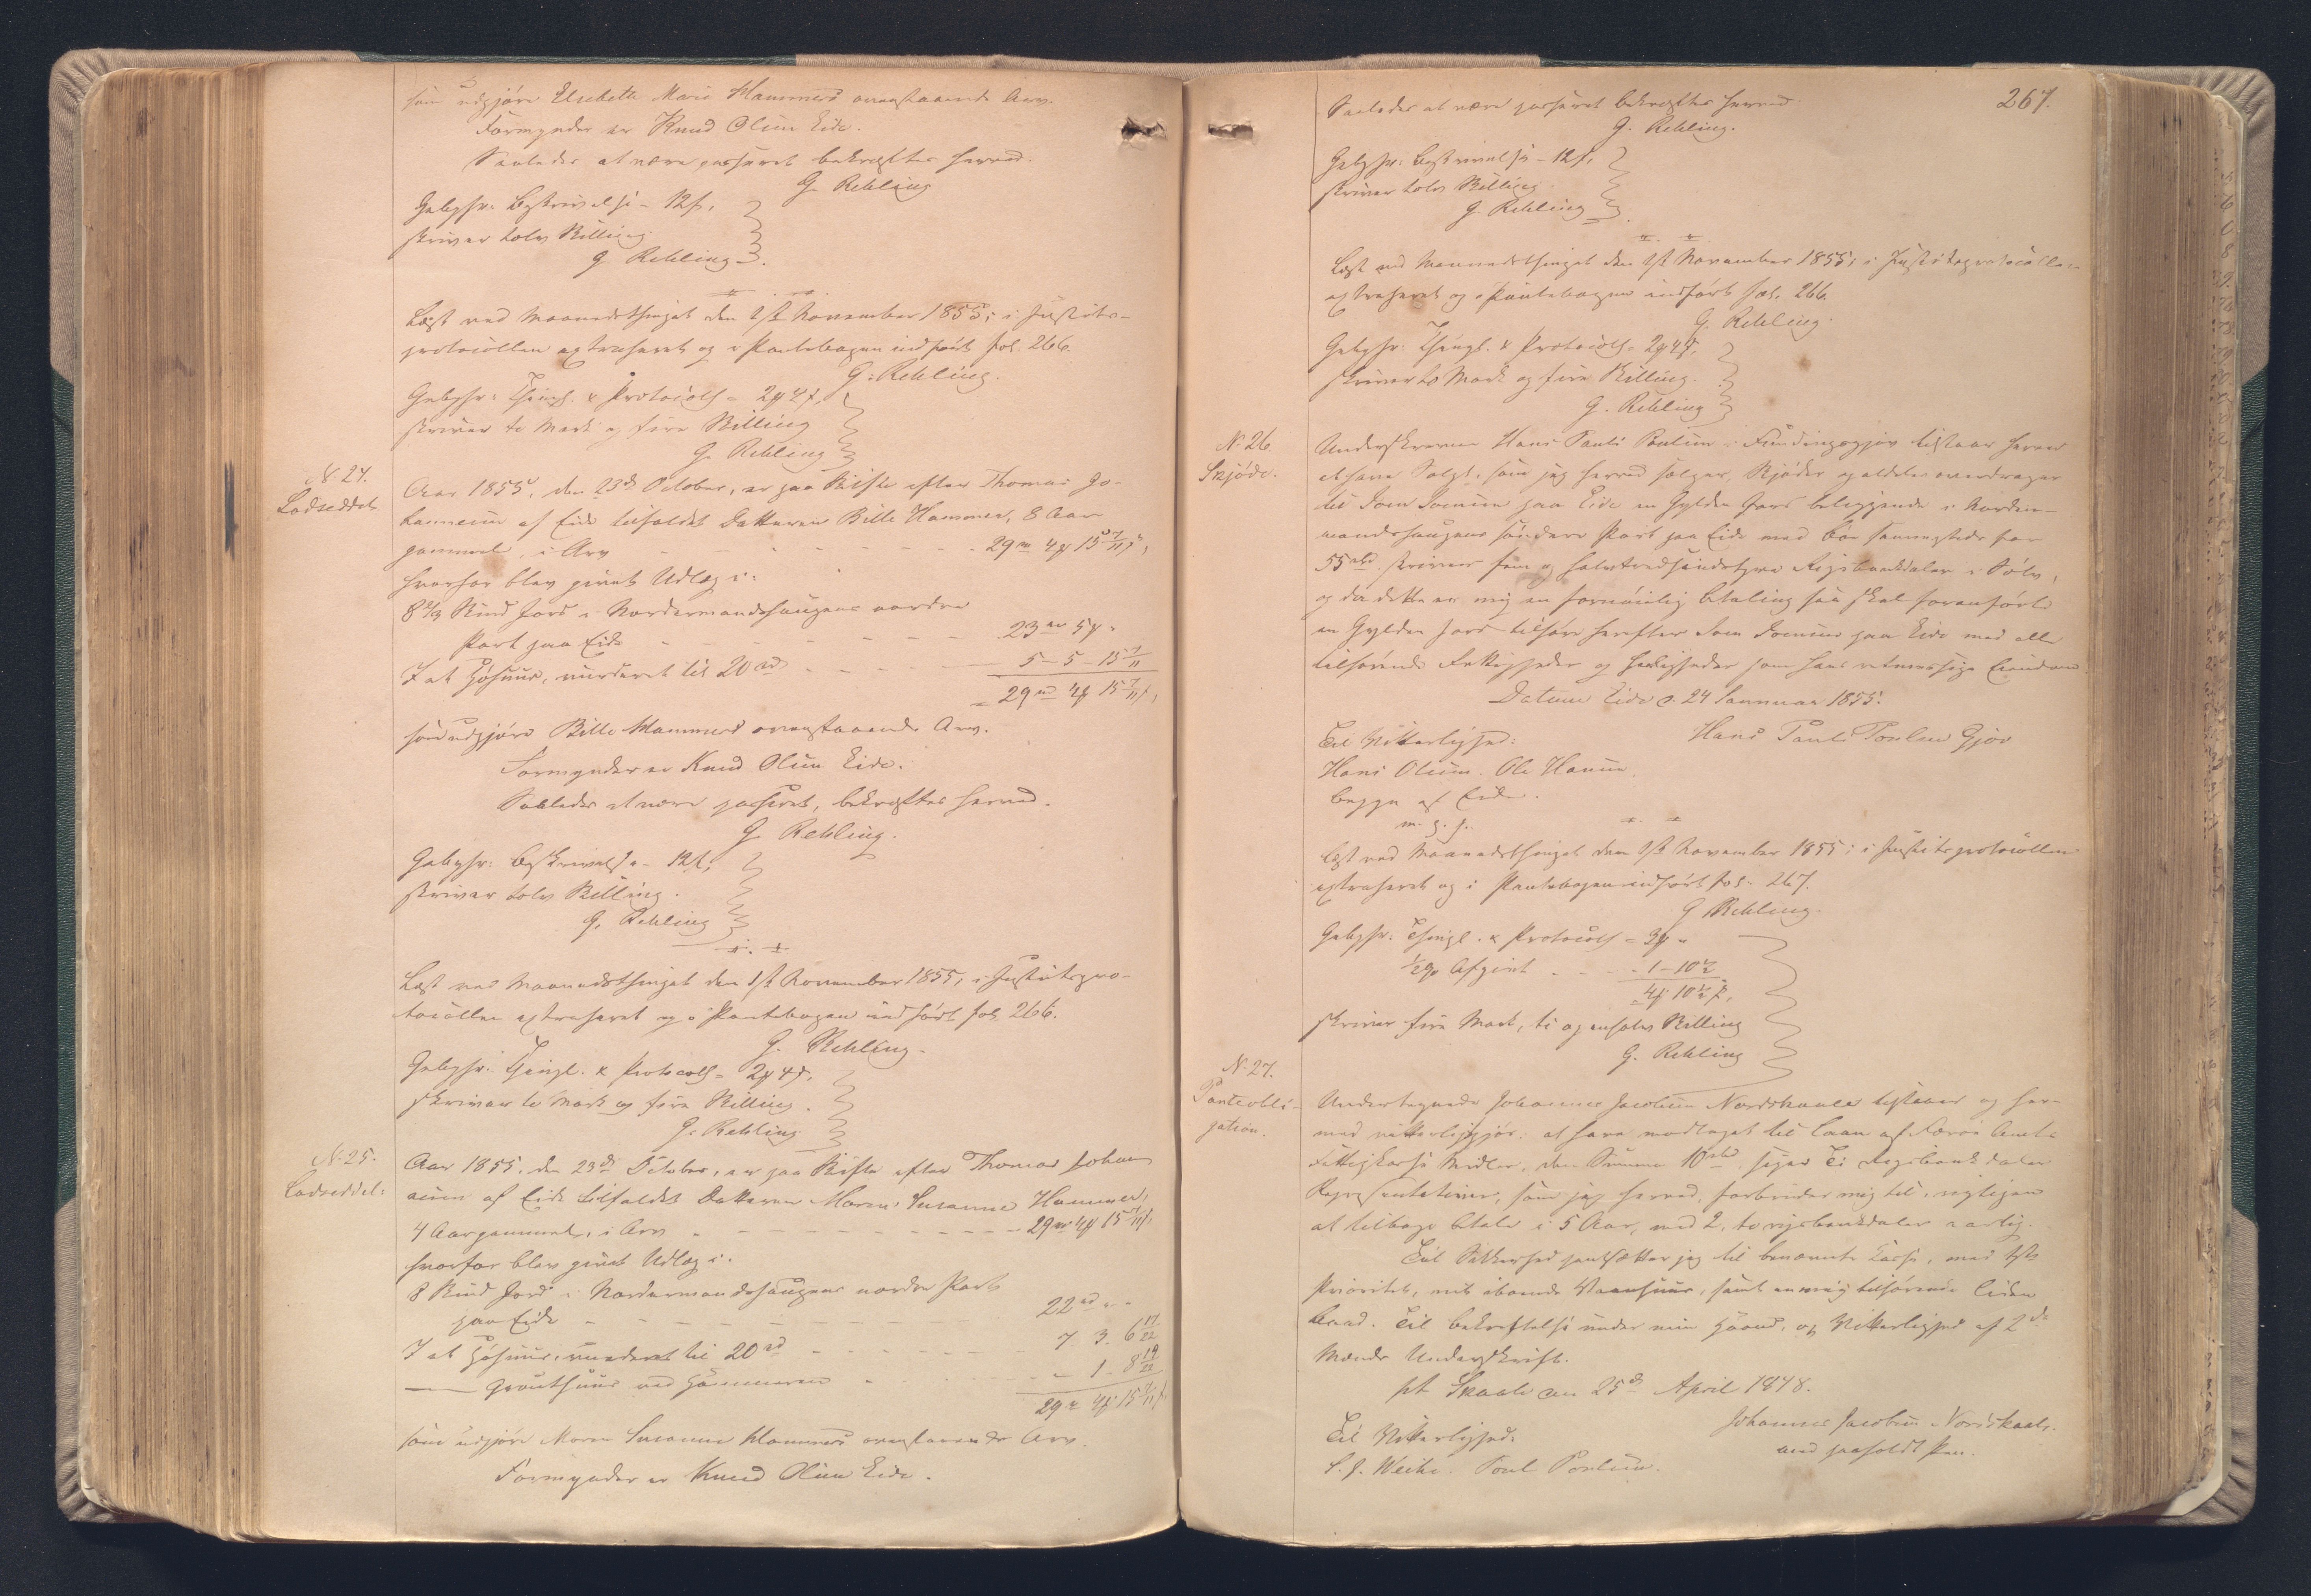 som udgjöre Elsebeth Marie Hammers ovenstaaende Arv.
Formynder er Knud Olsen Eide.
Saaledes at være passeret bekræftes herved.
G. Rehling
Gebyhr: Beskrivelse - 12 s,
skriver tolv Skilling.
G. Rehling
Læst ved Maanedsthinget den 1ste November 1855; i Justits-
protocollen extraheret og i Pantebogen indfört fol. 266.
G. Rehling.
Gebyhr: Thingl. & Protocols = 2 # 4 s,
skriver to Mark og fire Skilling
G. Rehling
N. 24.
Lodseddel
Aar 1855, den 23de October, er paa Skifte efter Thomas Jo-
hannesen af Eide tilfaldet Datteren Bille Hammer, 8 Aar
gammel, i Arv - - - 29 rd 4 # 15 7/11 s,
hvorfor blev givet Udlæg i:
8 Skind Jord i Nordermandshaugens nordre
Part paa Eide - - - 23 rd 5 # "
I et Höhuus, vurderet til 20 rd - - - 5 - 5 - 15 7/11
= 29 rd 4 # 15 7/11 s,
som udgjöre Bille Hammers ovenstaaende Arv.
Formynder er Knud Olsen Eide.
Saaledes at være passeret, bekræftes herved.
G. Rehling.
Gebyhr: Beskrivelse - 12 s,
skriver tolv Skilling.
G. Rehling
Læst ved Maanedsthinget den 1ste November 1855, i Justitspro-
tocollen extraheret og i Pantebogen indfört fol. 266.
G. Rehling.
Gebyhr: Thingl. & Protocols = 2 # 4 s,
skriver to Mark og fire Skilling.
G. Rehling
N. 25.
Lodseddel:
Aar 1855, den 23de October, er paa Skifte efter Thomas Johan
nesen af Eide tilfaldet Datteren Maren Susanne Hammer,
4 Aar gammel, i Arv - - - 29 rd 4 # 15 7/11 s,
hvorfor blev givet Udlæg i:
8 Skind Jord i Nordermandshaugens nordre Part
paa Eide - - - 22 rd " "
I et Höhuus, vurderet til 20 rd - - - 7 3 6 17/22
— Grouthuus ved Hammeren - - - 1 - 8 19/22
29 rd 4 # 15 7/11 s
som udgjöre Maren Susanne Hammers ovenstaaende Arv.
Formynder er Knud Olsen Eide.
267.
Saaledes at være passeret bekræftes herved.
G. Rehling.
Gebyhr: Beskrivelse - 12 s,
skriver tolv Skilling.
G. Rehling
Læst ved Maanedsthinget den 1ste November 1855; i Justitsprotocollen
extraheret og i Pantebogen indfört fol. 266.
G. Rehling.
Gebyhr: Thingl. & Protocols = 2 # 4 s,
skriver to Mark og fire Skilling.
G. Rehling
N. 26
Skjöde.
Underskreven Hans Pauli Poulsen i Fundingsgjov tilstaar herved
at have Solgt, som jeg herved sælger, Skjöder og aldeles overdrager
til Joen Joensen paa Eide en Gylden Jord beliggende i Norder-
mandshaugens söndere Part paa Eide med
55 rbd. skriver fem og halvtredsindstyve Rigsbankdaler i Sölv,
og da dette er mig en fornöielig Betaling saa skal foranförte
en Gylden Jord tilhöre herefter Joen Joensen paa Eide med alle
tilhörende Rettigheder og Herligheder som hans retmæssige Eiendom
Datum Eide d. 24 Januar 1855.
Hans Pauli Poulsen Gjov
Til Vitterlighed:
Hans Olsen. Ole Hansen.
begge af Eide.
m. f. P.
Læst ved Maanedsthinget den 1ste November 1855; i Justitsprotocollen
extraheret og i Pantebogen indfört fol. 267.
G Rehling.
Gebyhr: Thingl. & Protocols = 3 # "
½ % Afgivt - - - 1 - 10 ½
= 4 # 10 ½ s,
skriver fire Mark, ti og enhalv Skilling
G. Rehling
N. 27.
Panteobli-
gation.
Undertegnede Johannes Jacobsen Nordskaale tilstaaer og her-
med vitterliggjör: at have modtaget til Laan af Færöe Amts
Fattigkasse Midler, den Summa 10 rbd, siger Ti Rigsbankdaler
Repræsentativer, som jeg herved forbinder mig til, rigtigen
at tilbage betale i 5 Aar, med 2, to rigsbankdaler aarlig.
Til Sikkerhed pantsætter jeg til benævnte Casse, med 1ste
Prioritet, mit iboende Vaanhuus, samt en mig tilhörende liden
Baad. Til Bekræftelse under min Haand, og Vitterlighed af 2de
Mænds Underskrift.
pt Skaale den 25de April 1848.
Johannes Jacobsen Nordskaale.
med paaholdt Pen.
Til Vitterlighed:
S. J. Weihe. Poul Poulsen.